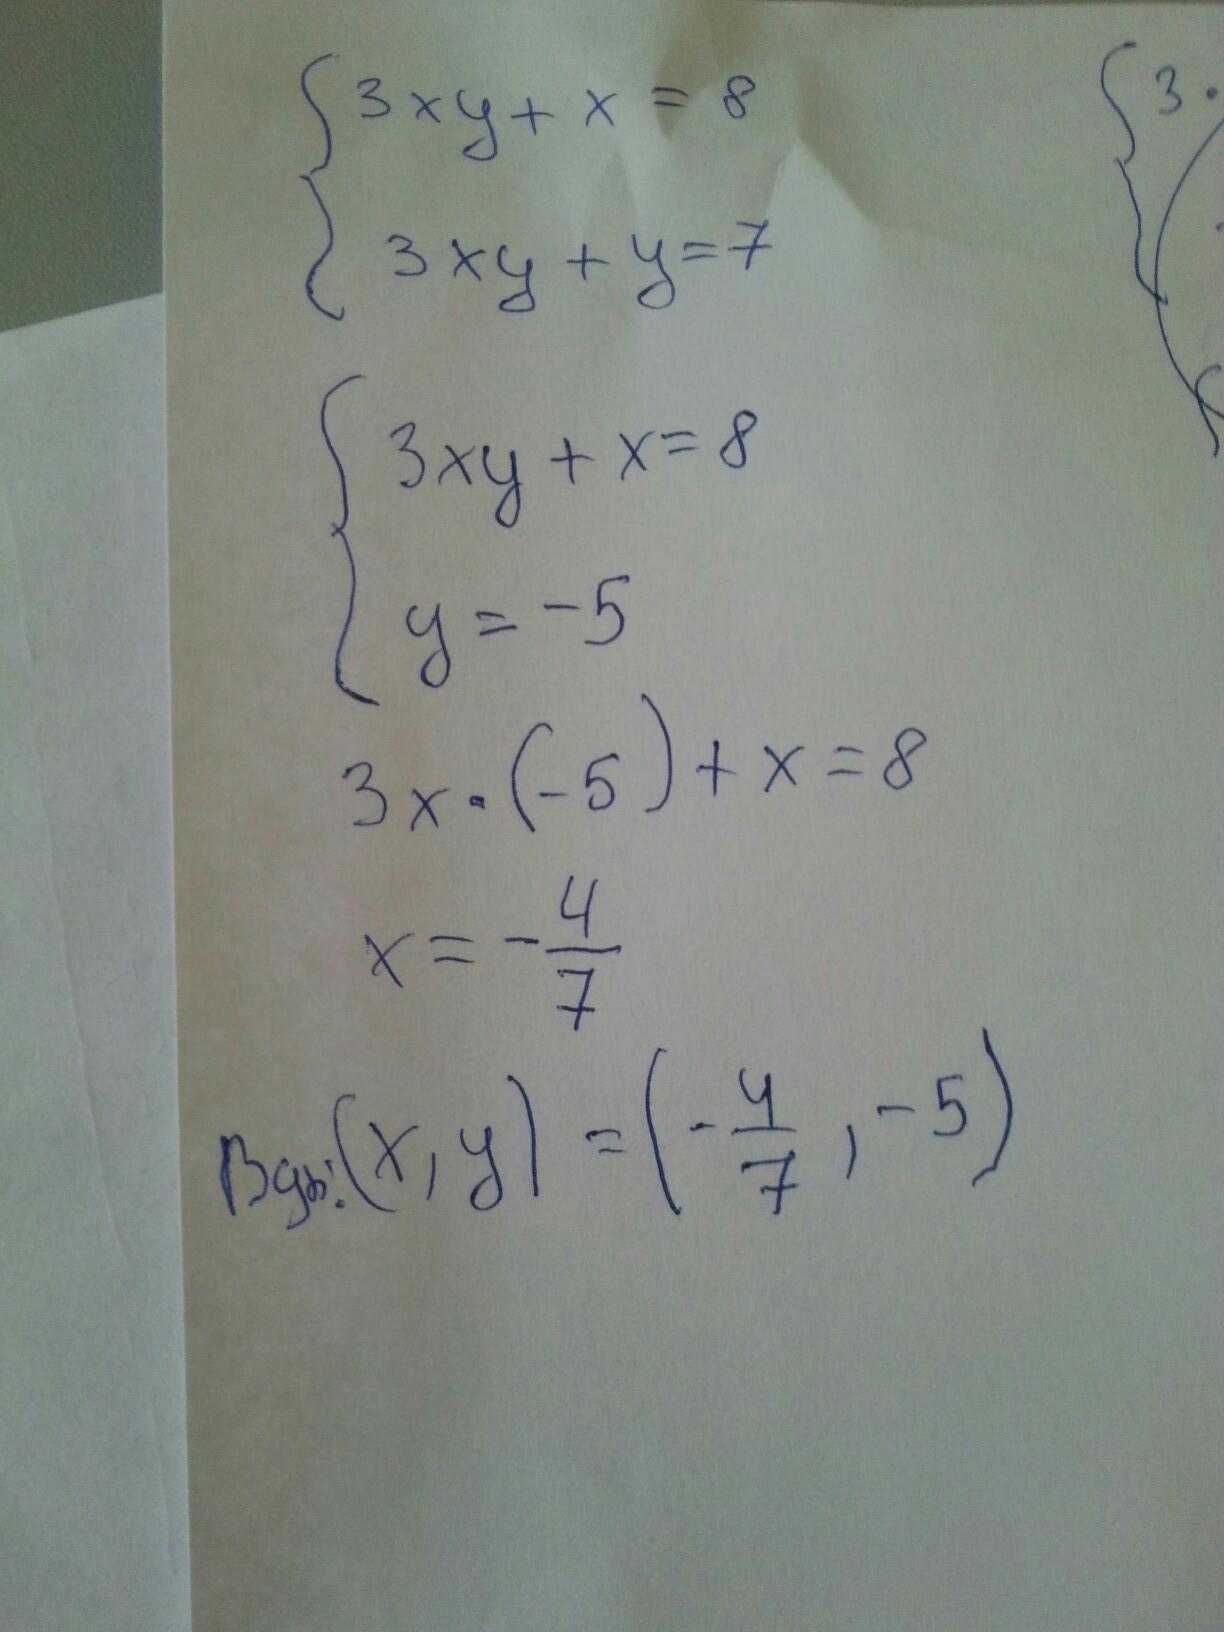 3xy + x = 8
3xy + y = 7
3xy + x = 8
y = -5
3x · (-5) + x = 8
x = -4/7
(x, y) = (-4/7, -5)
3 ·